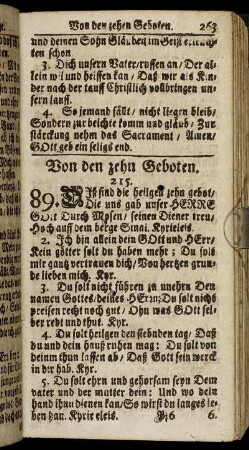 Von den zehen Geboten. 263
und deinen Sohn Gläubeit im Geist
ten schon
3. Dich unsern Vater/ruffen an/ Der al-
lein wil und heiffen kan/ Daß wir als Kin-
der nach der tauff Christlich vollbringen un-
sern lauff.
4. So jemand fällt/ nicht liegen bleib/
Sondern zur beichte komm und gläub/ Zur
stärckung nehm das Sacrament/ Amen/
GOtt geb ein seligs end.
Von den zehn Geboten.
215.
89. Diß sind die heilgen zehn gebot/
Die uns gab unser HERRE
GOtt Durch Mosen/ seinen Diener treu/
Hoch auff dem berge Sinai. Kyrieleis.
2. Ich bin allein dein GOtt und HErr/
Kein götter solt du haben mehr; Du solt
mir gantz vertrauen dich/ Von hertzen grun-
de lieben mich. Kyr.
3. Du solt nicht führen zu unehrn Den
namen Gottes/ deines HErrn; Du solt nicht
preisen recht noch gut/ Ohn was GOtt sel-
ber redt und thut. Kyr.
4. Du solt heilgen den siebnden tag/ Daß
du und dein hauß ruhen mag; Du solt von
deinm thun lassen ab/ Daß Gott sein werck
in dir hab. Kyr.
5. Du solt ehrn und gehorsam seyn Dem
vater und der mutter dein: Und wo dein
hand ihn dienen kan/ So wirst du langes le-
ben han. Kyrieeleis. 6 6.